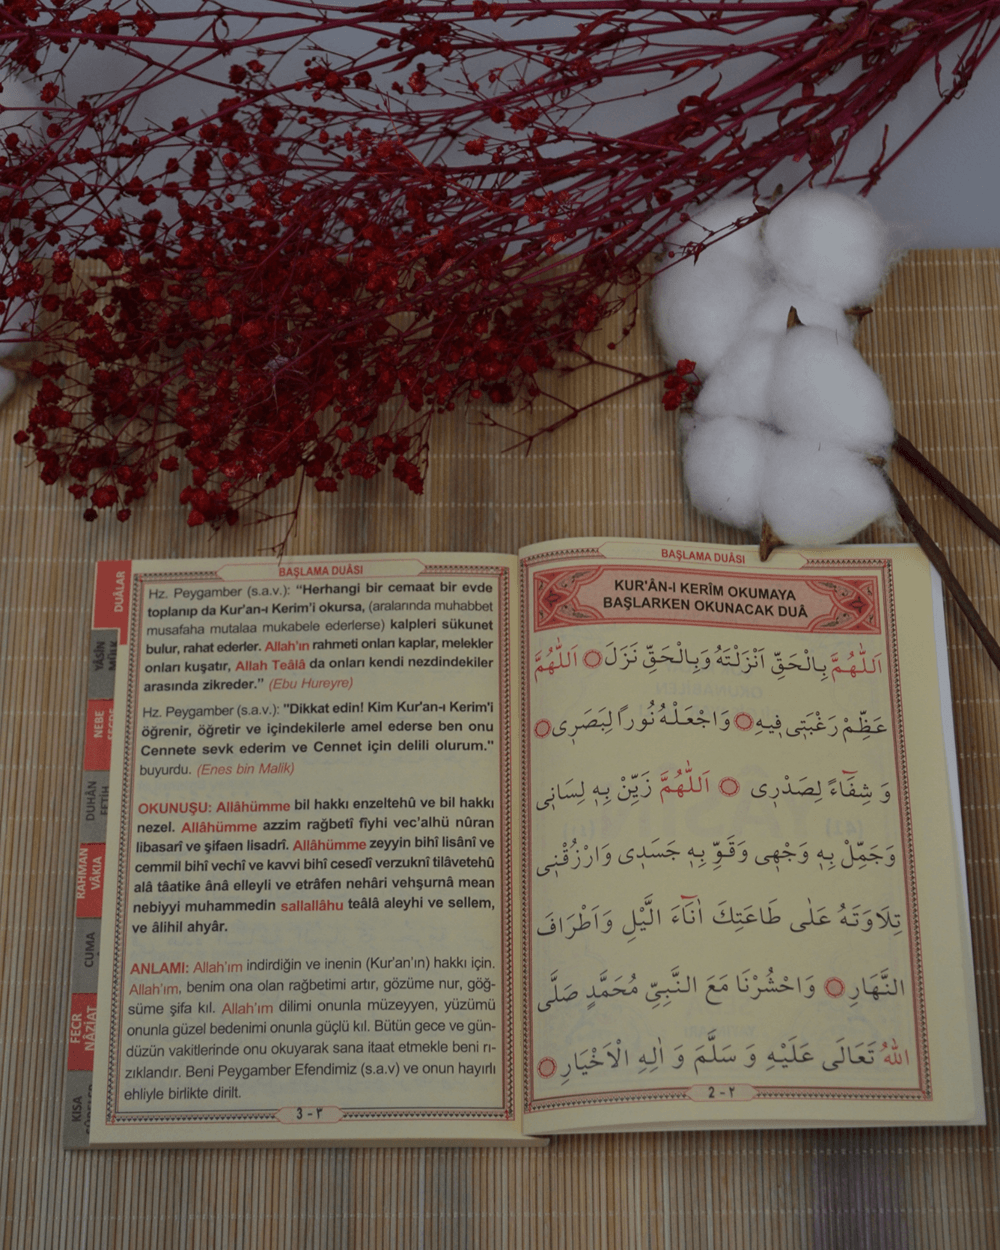 BAŞLAMA DUÂSI
KUR'ÂN-I KERÎM OKUMAYA
BAŞLARKEN OKUNACAK DUÂ
اَللّٰهُمَّ بِالْحَقِّ اَنْزَلْتَهُ وَبِالْحَقِّ نَزَلَ ۞ اَللّٰهُمَّ
عَظِّمْ رَغْبَتٖى فٖيهِ ۞ وَاجْعَلْهُ نُوراً لِبَصَرٖى ۞
وَ شِفَٓاءً لِصَدْرٖى ۞ اَللّٰهُمَّ زَيِّنْ بِهٖ لِسَانٖى
وَجَمِّلْ بِهٖ وَجْهٖى وَقَوِّ بِهٖ جَسَدٖى وَارْزُقْنٖى
تِلَاوَتَهُ عَلٰى طَاعَتِكَ اٰنَٓاءَ الَّيْلِ وَاَطْرَافَ
النَّهَارِ ۞ وَاحْشُرْنَا مَعَ النَّبِىِّ مُحَمَّدٍ صَلَّى
اللّٰهُ تَعَالَى عَلَيْهِ وَ سَلَّمَ وَ اٰلِهِ الْاَخْيَارِ ۞
2 - ٢
BAŞLAMA DUÂSI
Hz. Peygamber (s.a.v.): "Herhangi bir cemaat bir evde
toplanıp da Kur'an-ı Kerim'i okursa, (aralarında muhabbet
musafaha mutalaa mukabele ederlerse) kalpleri sükunet
bulur, rahat ederler. Allah'ın rahmeti onları kaplar, melekler
onları kuşatır, Allah Teâlâ da onları kendi nezdindekiler
arasında zikreder." (Ebu Hureyre)
Hz. Peygamber (s.a.v.): "Dikkat edin! Kim Kur'an-ı Kerim'i
öğrenir, öğretir ve içindekilerle amel ederse ben onu
Cennete sevk ederim ve Cennet için delili olurum."
buyurdu. (Enes bin Malik)
OKUNUŞU: Allâhümme bil hakkı enzeltehû ve bil hakkı
nezel. Allâhümme azzim rağbetî fîyhi vec'alhü nûran
libasarî ve şifaen lisadrî. Allâhümme zeyyin bihî lisânî ve
cemmil bihî vechî ve kavvi bihî cesedî verzuknî tilâvetehû
alâ tâatike ânâ elleyli ve etrâfen nehâri vehşurnâ mean
nebiyyi muhammedin sallallâhu teâlâ aleyhi ve sellem,
ve âlihil ahyâr.
ANLAMI: Allah'ım indirdiğin ve inenin (Kur'an'ın) hakkı için.
Allah'ım, benim ona olan rağbetimi artır, gözüme nur, göğ-
süme şifa kıl. Allah'ım dilimi onunla müzeyyen, yüzümü
onunla güzel bedenimi onunla güçlü kıl. Bütün gece ve gün-
düzün vakitlerinde onu okuyarak sana itaat etmekle beni rı-
zıklandır. Beni Peygamber Efendimiz (s.a.v) ve onun hayırlı
ehliyle birlikte dirilt.
3 - ٣
DUÂLAR
YÂSÎN
MÜLK
NEBE
DUHÂN
FETİH
RAHMAN
VÂKIA
CUMA
FECR
NÂZİÂT
KISA